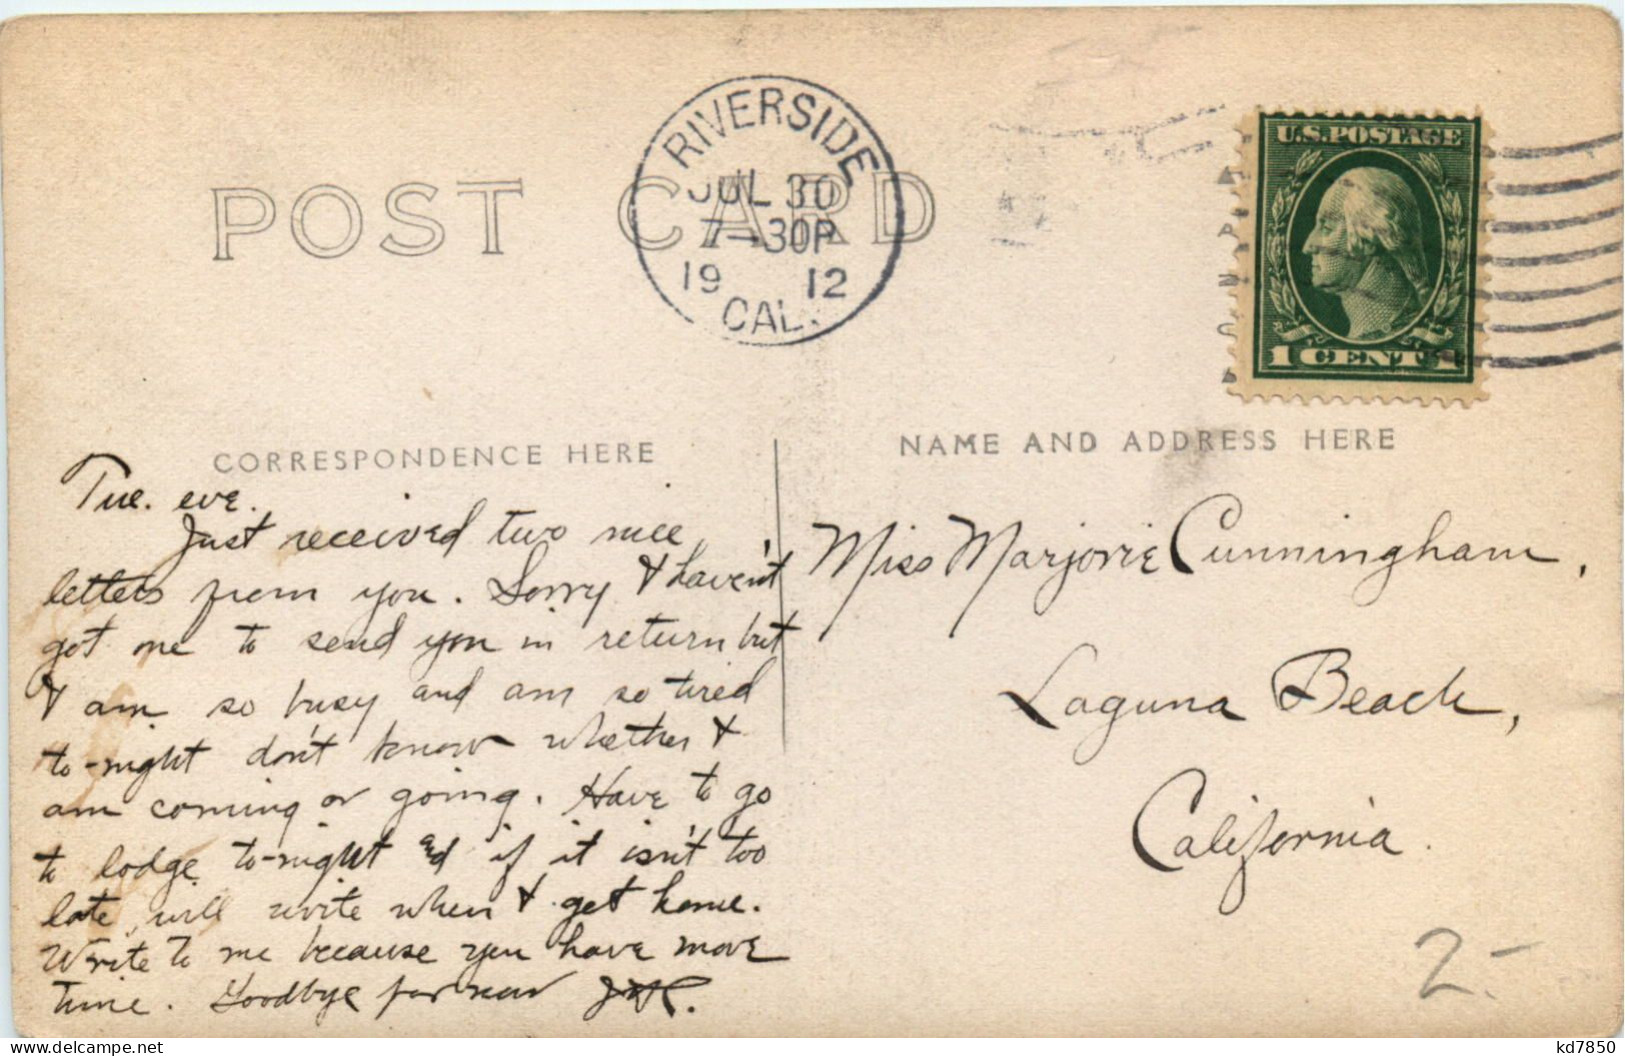 RIVERSIDE
JUL 30
7-30P
19 12
CAL.
POST CARD
U.S.POSTAGE
1 CENT 1
CORRESPONDENCE HERE
NAME AND ADDRESS HERE
Tue. eve.
Just received two nice
letters from you. Sorry I haven't
got one to send you in return but
I am so busy and am so tired
to-night don't know whether I
am coming or going. Have to go
to lodge to-night and if it isn't too
late, will write when I get home.
Write to me because you have more
time. Goodbye for now
Miss Marjorie Cunningham,
Laguna Beach,
California.
2-
delcampe.net
kd7850